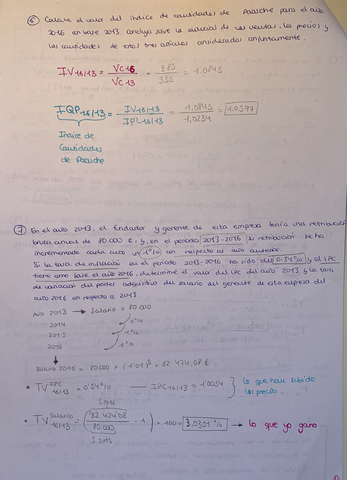 ⑥ Calcule el valor del índice de cantidades de Paasche para el año
2016 en base 2013. Concluya sobre la evolución de las ventas, los precios y
las cantidades de estos tres artículos considerados conjuntamente.
IV16/13 = VC16 / VC13 = = 1.0845
IQP16/13 = IV16/13 / IPL16/13 = 1.0845 / 1.0234 = 1.0597
Indice de
Cantidades
de Paasche
⑦ En el año 2013, el fundador y gerente de esta empresa tenía una retribución
bruta anual de 80.000 €, y, en el periodo 2013-2016 su retribución se ha
incrementado cada año un 1% con respecto al año anterior.
Si la tasa de inflación en el periodo 2013-2016 ha sido del 0'54% y el IPC
tiene como base el año 2016, determine el valor del IPC del año 2013 y la tasa
de variación del poder adquisitivo del salario del gerente de esta empresa del
año 2016 con respecto a 2013
Año 2013 → Salario = 80.000
2014 1%
2015 1%
2016 1%
Salario 2016 = 80.000 × (1'01)³ = 82 424,08 €
• TV IPC 16/13 = 0'54% — IPC16/13 = 1'0054 } lo que han subido
los precios
• TV Salarios 16/13 = (82 424'08 / 80.000 - 1) · 100 = 3.0301% → lo que yo gano